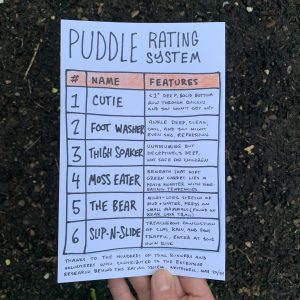 PUDDLE RATING SYSTEM
# NAME FEATURES
1 CUTIE <1" DEEP, SOLID BOTTOM
RUN THROUGH QUICKLY
AND YOU WON'T GET WET
2 FOOT WASHER ANKLE DEEP, CLEAN,
COOL, AND YOU MIGHT
EVEN SAY, REFRESHING
3 THIGH SOAKER UNASSUMING BUT
DECEPTIVELY DEEP.
NOT SAFE FOR CHILDREN
4 MOSS EATER BENEATH THAT SOFT
GREEN CARPET LIES A
MONSTER WITH
TENDENCIES
5 THE BEAR MILE-LONG STRETCH OF
MUD + WATER, PRESS ON
SMALL MAMMALS (FOUND ON
BEAR LAKE TRAIL)
6 SLIP-N-SLIDE TREACHEROUS CONCOCTION
OF CLAY, RAIN, AND FOOT
TRAFFIC, ENTER AT YOUR
OWN RISK
THANKS TO THE HUNDREDS OF TRAIL RUNNERS AND
VOLUNTEERS WHO CONTRIBUTED TO THE EXTENSIVE
RESEARCH BEHIND THIS RATING SYSTEM.